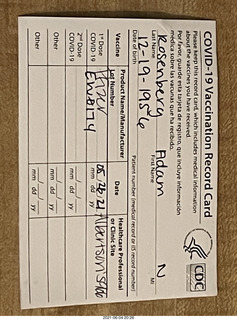 COVID-19 Vaccination Record Card
Please keep this record card, which includes medical information
about the vaccines you have received.
Por favor, guarde esta tarjeta de registro, que incluye información
médica sobre las vacunas que ha recibido.
CDC
Rosenberg Adam N
Last Name First Name MI
12-19-1956
Date of birth Patient number (medical record or IIS record number)
Vaccine Product Name/Manufacturer Date Healthcare Professional
Lot Number or Clinic Site
1st Dose
COVID-19 EW0174 05 26 21
mm dd yy
2nd Dose
COVID-19 mm dd yy
Other mm dd yy
Other mm dd yy